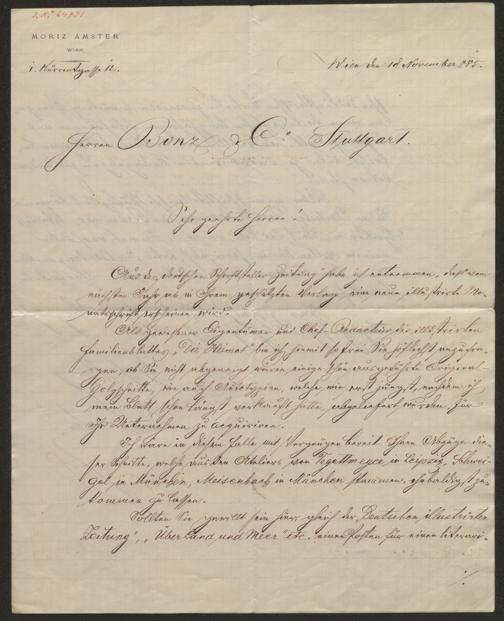 MORIZ AMSTER
WIEN
I. Kärrntgasse 12.
Wien den 18 November 885.
Herren Bonz & Co Stuttgart.
Sehr geehrte Herren!
Aus der deutschen Schriftsteller Zeitung habe ich entnommen, daß vom
nächsten Jahr ab in Ihrem geschätzten Verlag eine neue illustrirte Mo-
natsschrift erscheinen wird.
Als gewesener Eigenthümer und Chef-Redacteur des illustrirten
Familienblattes "Die Heimat" bin ich hiemit so frei Sie höflichst anzufra-
gen, ob Sie nicht abgeneigt wären einige schön ausgeführte Original-
Holzschnitte, wie auch Autotypien, welche mir erst jüngst, nachdem ich
mein Blatt schon längst verkauft hatte, abgeliefert wurden, für
Ihr Unternehmen zu acquiriren.
Ich wäre in diesem Falle mit Vergnügen bereit Ihnen Abzüge die-
ser Schnitte, welche aus den Ateliers von Tegetmeyer in Leipzig,
in München, Meisenbach in München stammen, ehebaldigst zu-
kommen zu lassen.
Sollten Sie gewillt sein hier, gleich der "Deutschen illustrirten
Zeitung", "Über Land und Meer" etc. einen Posten für einen literari-